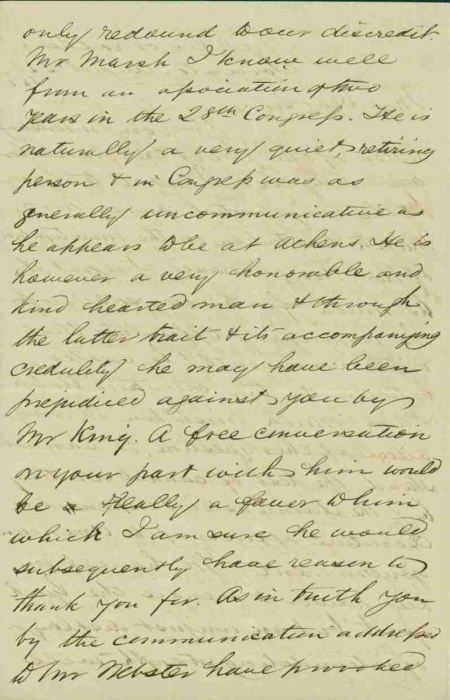 only redound to our discredit.
Mr Marsh I know well
from an association of two
years in the 28th Congress. He is
naturally a very quiet, retiring
person & in Congress was as
generally uncommunicative as
he appears to be at Athens. He is
however a very honorable and
kind hearted man & through
the latter trait & its accompanying
credulity he may have been
prejudiced against you by
Mr King. A free conversation
on your part with him would
be really a favor to him
which I am sure he would
subsequently have reason to
thank you for. As in truth you
by the communication addressed
to Mr Webster have provoked